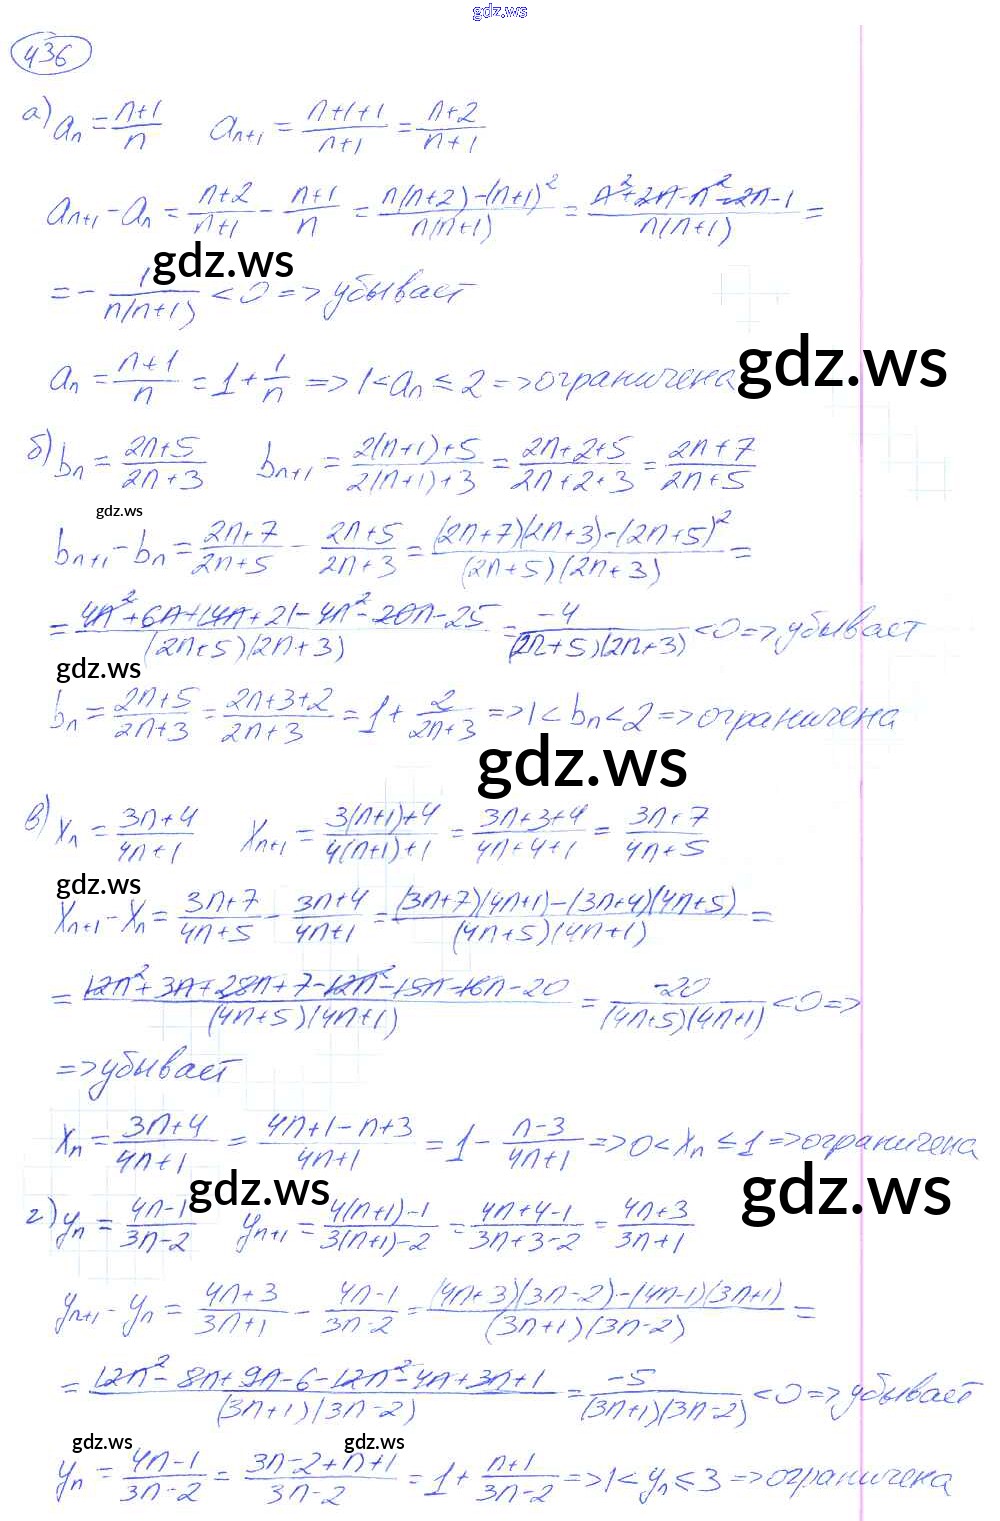 gdz.ws
436
а) aₙ = (n+1)/n   aₙ₊₁ = (n+1+1)/(n+1) = (n+2)/(n+1)
aₙ₊₁ - aₙ = (n+2)/(n+1) - (n+1)/n = (n(n+2)-(n+1)²)/(n(n+1)) = (n²+2n-n²-2n-1)/(n(n+1)) =
gdz.ws
= - 1/(n(n+1)) < 0 => убывает
gdz.ws
aₙ = (n+1)/n = 1 + 1/n => 1 < aₙ ≤ 2 => ограничена
б) bₙ = (2n+5)/(2n+3)   bₙ₊₁ = (2(n+1)+5)/(2(n+1)+3) = (2n+2+5)/(2n+2+3) = (2n+7)/(2n+5)
gdz.ws
bₙ₊₁ - bₙ = (2n+7)/(2n+5) - (2n+5)/(2n+3) = ((2n+7)(2n+3)-(2n+5)²)/((2n+5)(2n+3)) =
= (4n²+6n+14n+21-4n²-20n-25)/((2n+5)(2n+3)) = -4/((2n+5)(2n+3)) < 0 => убывает
gdz.ws
bₙ = (2n+5)/(2n+3) = (2n+3+2)/(2n+3) = 1 + 2/(2n+3) => 1 < bₙ < 2 => ограничена
gdz.ws
в) xₙ = (3n+4)/(4n+1)   xₙ₊₁ = (3(n+1)+4)/(4(n+1)+1) = (3n+3+4)/(4n+4+1) = (3n+7)/(4n+5)
gdz.ws
xₙ₊₁ - xₙ = (3n+7)/(4n+5) - (3n+4)/(4n+1) = ((3n+7)(4n+1)-(3n+4)(4n+5))/((4n+5)(4n+1)) =
= (12n²+3n+28n+7-12n²-15n-16n-20)/((4n+5)(4n+1)) = -20/((4n+5)(4n+1)) < 0 =>
=> убывает
xₙ = (3n+4)/(4n+1) = (4n+1-n+3)/(4n+1) = 1 - (n-3)/(4n+1) => 0 < xₙ ≤ 1 => ограничена
gdz.ws
gdz.ws
г) yₙ = (4n-1)/(3n-2)   yₙ₊₁ = (4(n+1)-1)/(3(n+1)-2) = (4n+4-1)/(3n+3-2) = (4n+3)/(3n+1)
yₙ₊₁ - yₙ = (4n+3)/(3n+1) - (4n-1)/(3n-2) = ((4n+3)(3n-2)-(4n-1)(3n+1))/((3n+1)(3n-2)) =
= (12n²-8n+9n-6-12n²-4n+3n+1)/((3n+1)(3n-2)) = -5/((3n+1)(3n-2)) < 0 => убывает
gdz.ws gdz.ws
yₙ = (4n-1)/(3n-2) = (3n-2+n+1)/(3n-2) = 1 + (n+1)/(3n-2) => 1 < yₙ ≤ 3 => ограничена